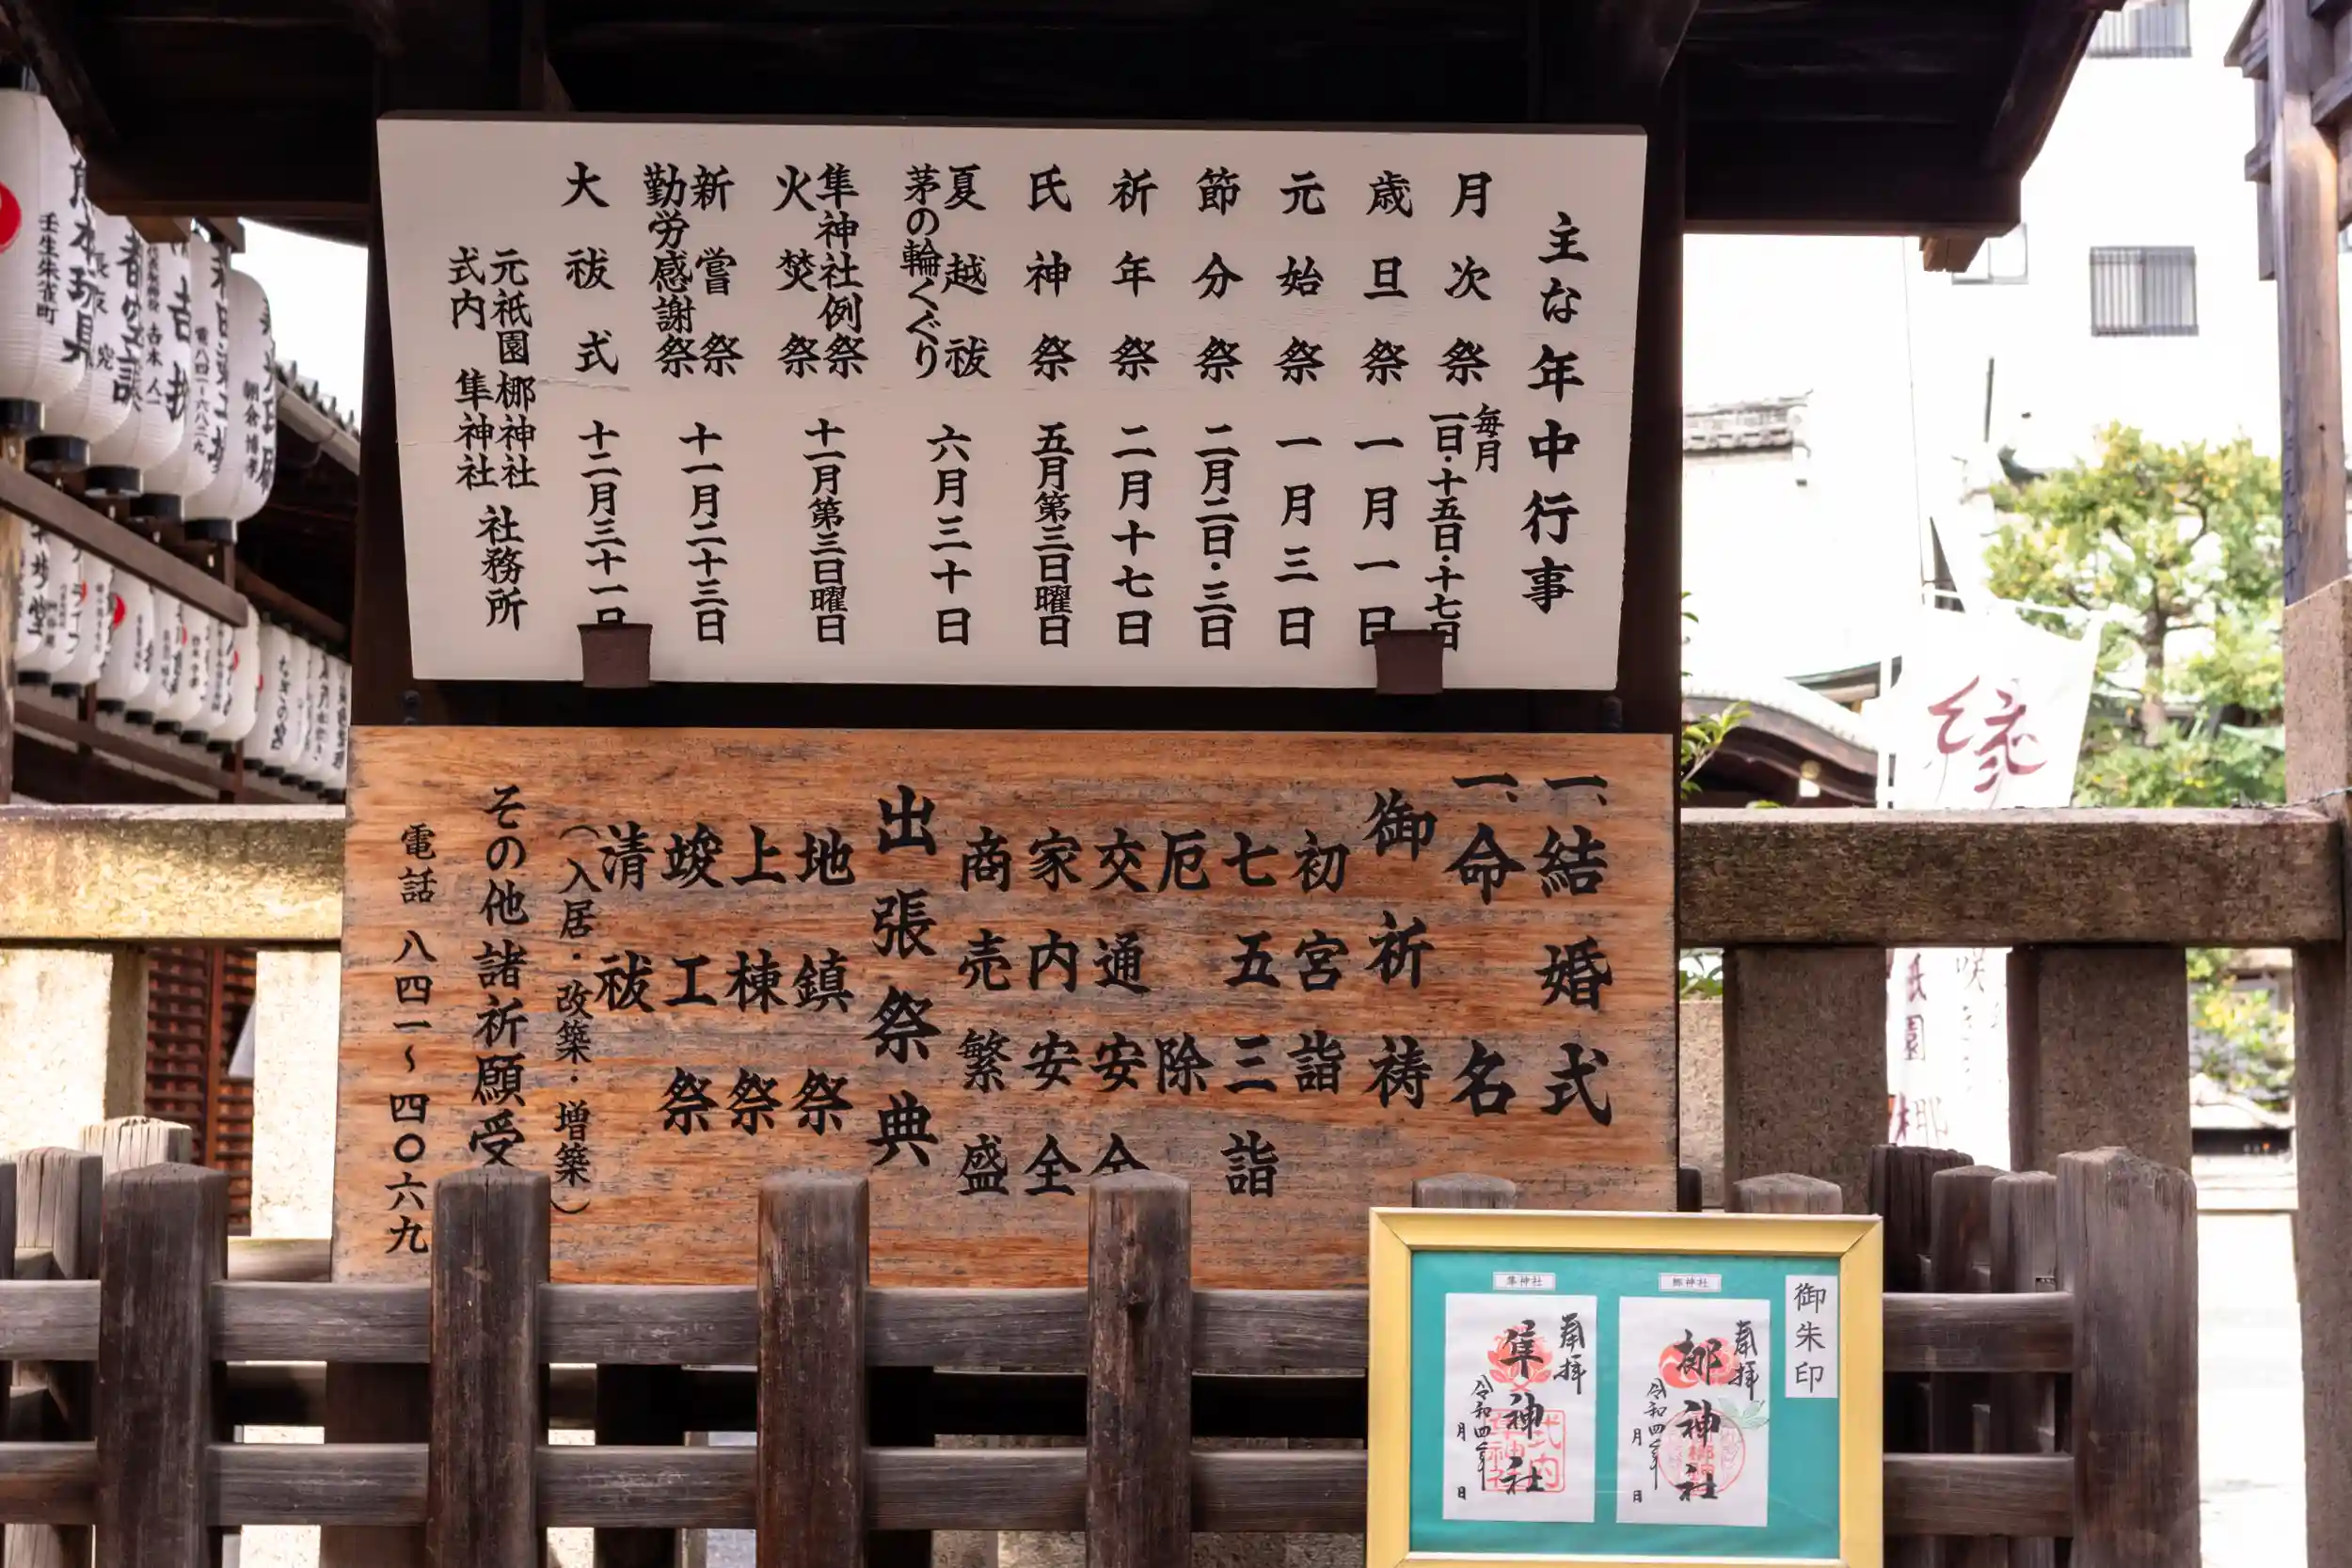 主な年中行事
月次祭 毎月 一日・十五日・十七日
歳旦祭 一月一日
元始祭 一月三日
節分祭 二月二日・三日
祈年祭 二月十七日
氏神祭 五月第三日曜日
夏越祓
茅の輪くぐり 六月三十日
隼神社例祭
火焚祭 十一月第三日曜日
新嘗祭
勤労感謝祭 十一月二十三日
大祓式 十二月三十一日
元祇園梛神社
式内 隼神社 社務所
一、結婚式
一、命名
御祈祷
初宮詣
七五三詣
厄除
交通安全
家内安全
商売繁盛
出張祭典
地鎮祭
上棟祭
竣工祭
清祓
(入居・改築・増築)
その他諸祈願受
電話 八四一〜四〇六九
縁
御朱印
梛神社
奉拝
梛神社
令和四年 月 日
隼神社
奉拝
隼神社
令和四年 月 日
式内
隼神社
壬生朱雀町
朝倉
なぎの宮
祇園梛